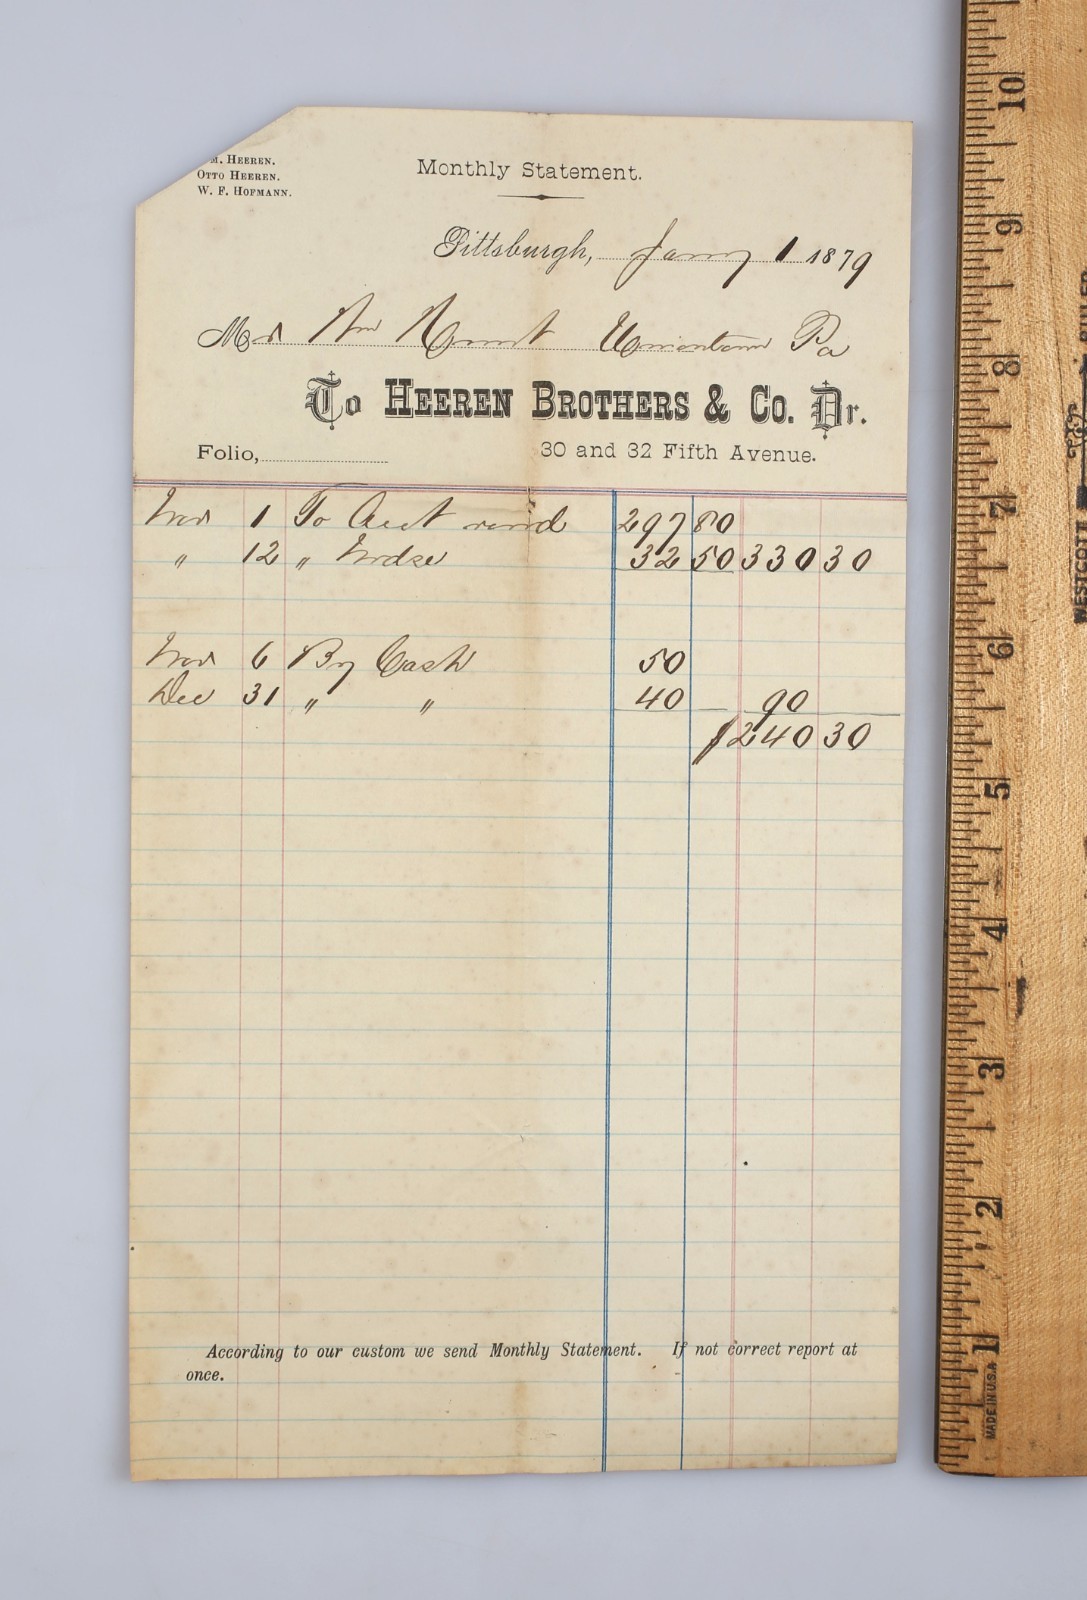 M. HEEREN.
OTTO HEEREN.
W. F. HOFMANN.
Monthly Statement.
Pittsburgh, Jany 1 1879
Mr Wm Hunt Uniontown Pa
To HEEREN BROTHERS & Co. Dr.
Folio, 30 and 32 Fifth Avenue.
Nov 1 To Acct rend 297 80
" 12 " Mdse 32 50 330 30
Nov 6 By Cash 50
Dec 31 " " 40 90
$240 30
According to our custom we send Monthly Statement. If not correct report at
once.
10
9
8
7
6
5
4
3
2
1
WESTCOTT
MADE IN U.S.A